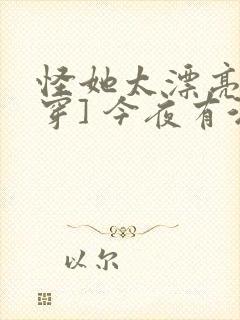 怪她太漂亮
穿] 今夜有
以尔